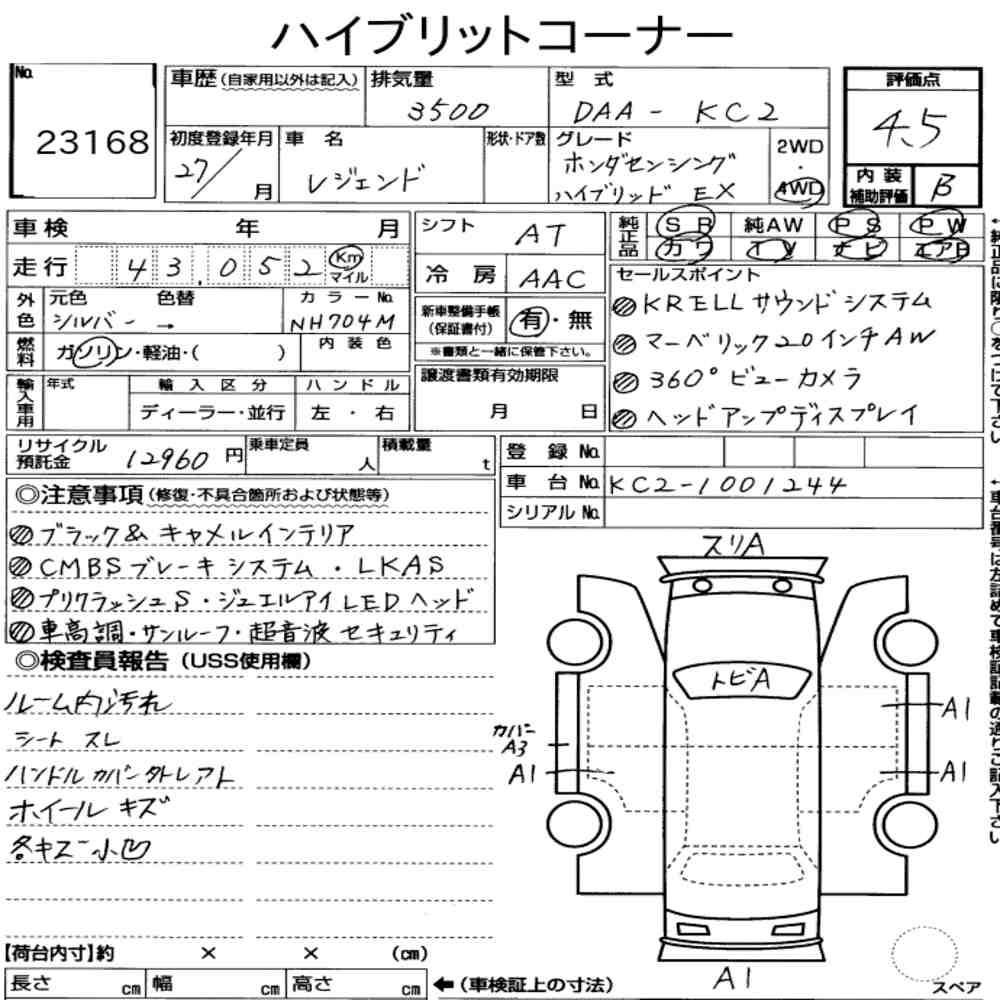 ハイブリットコーナー
No.
23168
車歴(自家用以外は記入)
排気量
3500
型 式
DAA - KC2
評価点
4.5
初度登録年月
27/
月
車 名
レジェンド
形状・ドア数
グレード
ホンダセンシング
ハイブリッド EX
2WD
・
4WD
内装
補助評価
B
車検 年 月
シフト
AT
純正品
SR 純AW PS PW
カワ TV ナビ エアB
走行
43,052
Km
マイル
冷房
AAC
セールスポイント
KRELLサウンドシステム
マーベリック20インチAW
360°ビューカメラ
ヘッドアップディスプレイ
外色
元色 色替
シルバー →
カラーNo.
NH704M
新車整備手帳
(保証書付)
有・無
※書類と一緒に保管下さい。
燃料
ガソリン・軽油・( )
内装色
輸入車用
年式
輸入区分
ディーラー・並行
ハンドル
左 ・ 右
譲渡書類有効期限
月 日
リサイクル
預託金
12960円
乗車定員
人
積載量
t
登 録 No.
車 台 No.
KC2-1001244
シリアル No.
◎注意事項(修復・不具合箇所および状態等)
ブラック&キャメルインテリア
CMBSブレーキシステム・LKAS
プリクラッシュS・ジュエルアイLEDヘッド
車高調・サンルーフ・超音波セキュリティ
◎検査員報告(USS使用欄)
ルーム内汚れ
シート スレ
ハンドルカバー外レアト
ホイールキズ
各キズ小凹
スリA
トビA
カバー
A3
A1
A1
A1
A1
スペア
【荷台内寸】約 × × (cm)
長さ cm 幅 cm 高さ cm
←(車検証上の寸法)
←純正品に限り○をつけて下さい
←車台番号は左詰めで車検証記載の通りご記入下さい